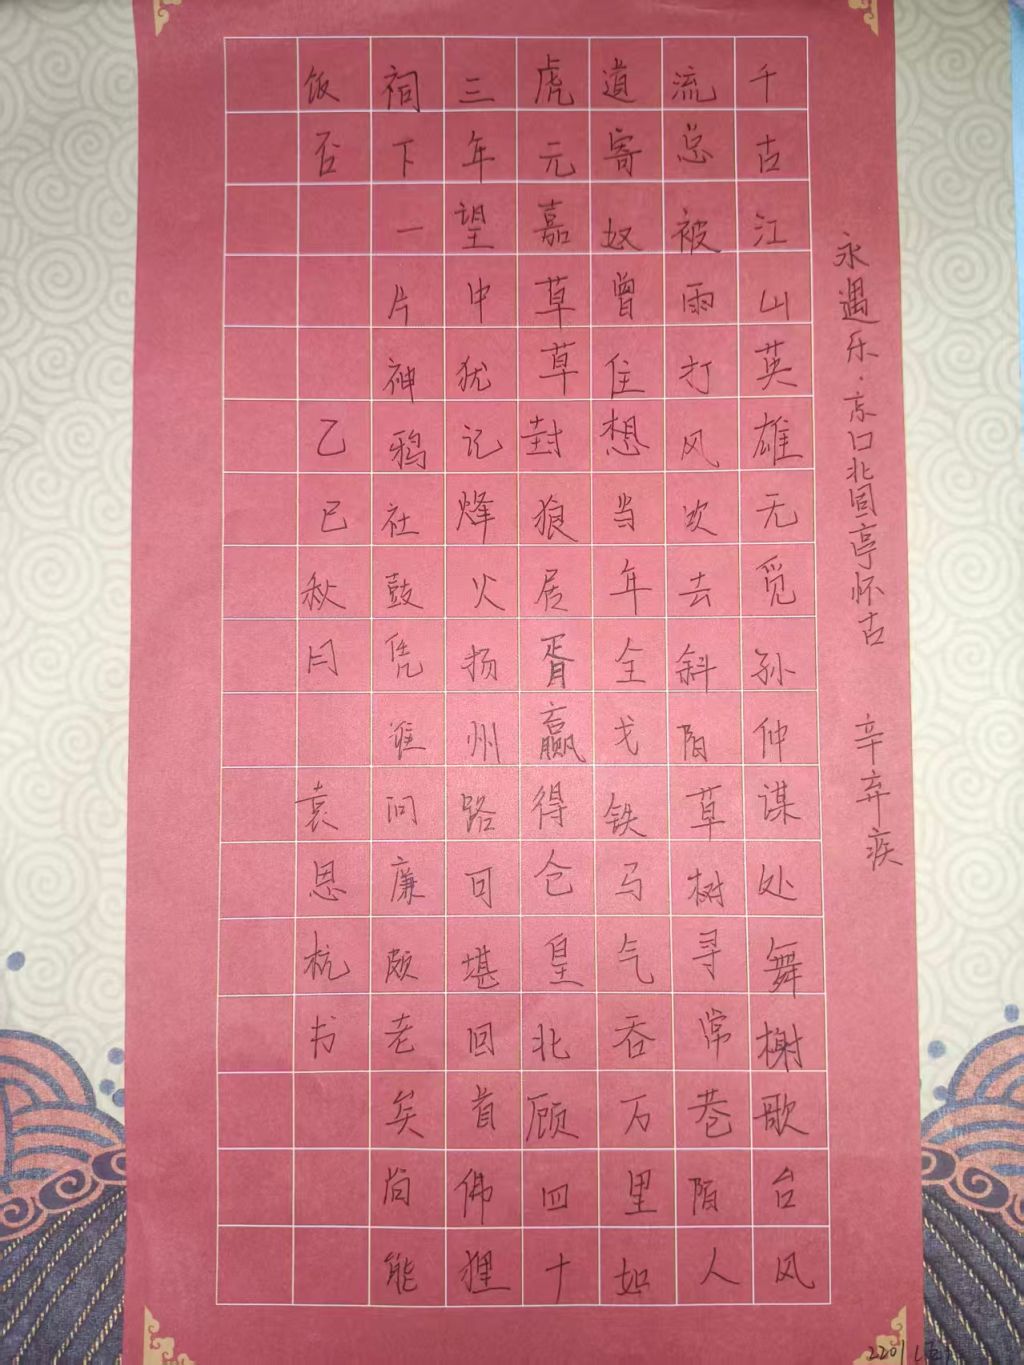 永遇乐·京口北固亭怀古 辛弃疾
千古江山英雄无觅孙仲谋处舞榭歌台风
流总被雨打风吹去斜阳草树寻常巷陌人
道寄奴曾住想当年金戈铁马气吞万里如
虎元嘉草草封狼居胥赢得仓皇北顾四十
三年望中犹记烽火扬州路可堪回首佛狸
祠下一片神鸦社鼓凭谁问廉颇老矣尚能
饭否 乙巳秋月 袁恩杭书
2201